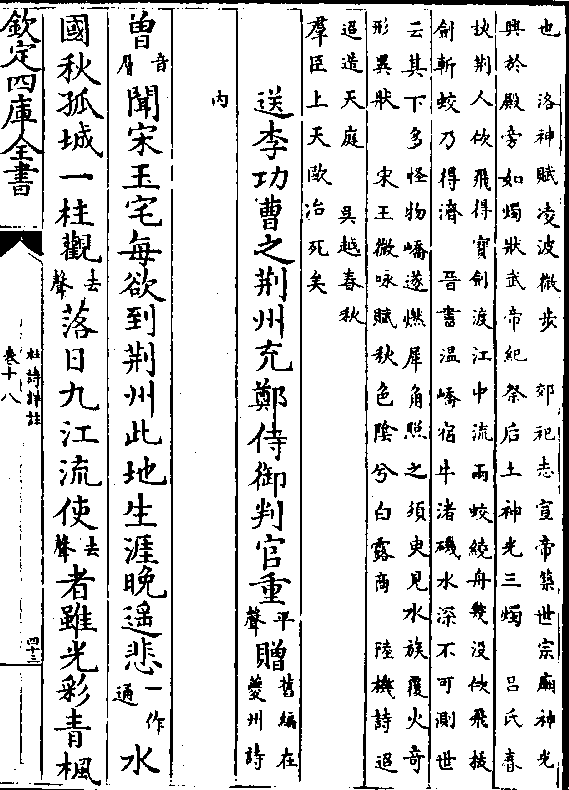 也　洛神賦凌波微步　郊祀志宣帝築世宗廟神光
興於殿旁如燭狀武帝紀祭后土神光三燭　呂氏春
秋荆人佽飛得寶劍渡江中流兩蛟繞舟幾没佽飛拔
劍斬蛟乃得濟　晉書温嶠宿牛渚磯水深不可測世
云其下多怪物嶠遂燃犀角照之須臾見水族覆火奇
形異狀　宋玉微咏賦秋色陰兮白露商　陸機詩迢
迢造天庭　吳越春秋
羣臣上天歐冶死矣
送李功曹之荆州充鄭侍御判官重平聲贈舊編在夔州詩
内
曽音層聞宋玉宅每欲到荆州此地生涯晚遥悲一作通水
國秋孤城一柱觀去聲落日九江流使去聲者雖光彩青楓
欽定四庫全書
杜詩詳註
卷十八
四十三